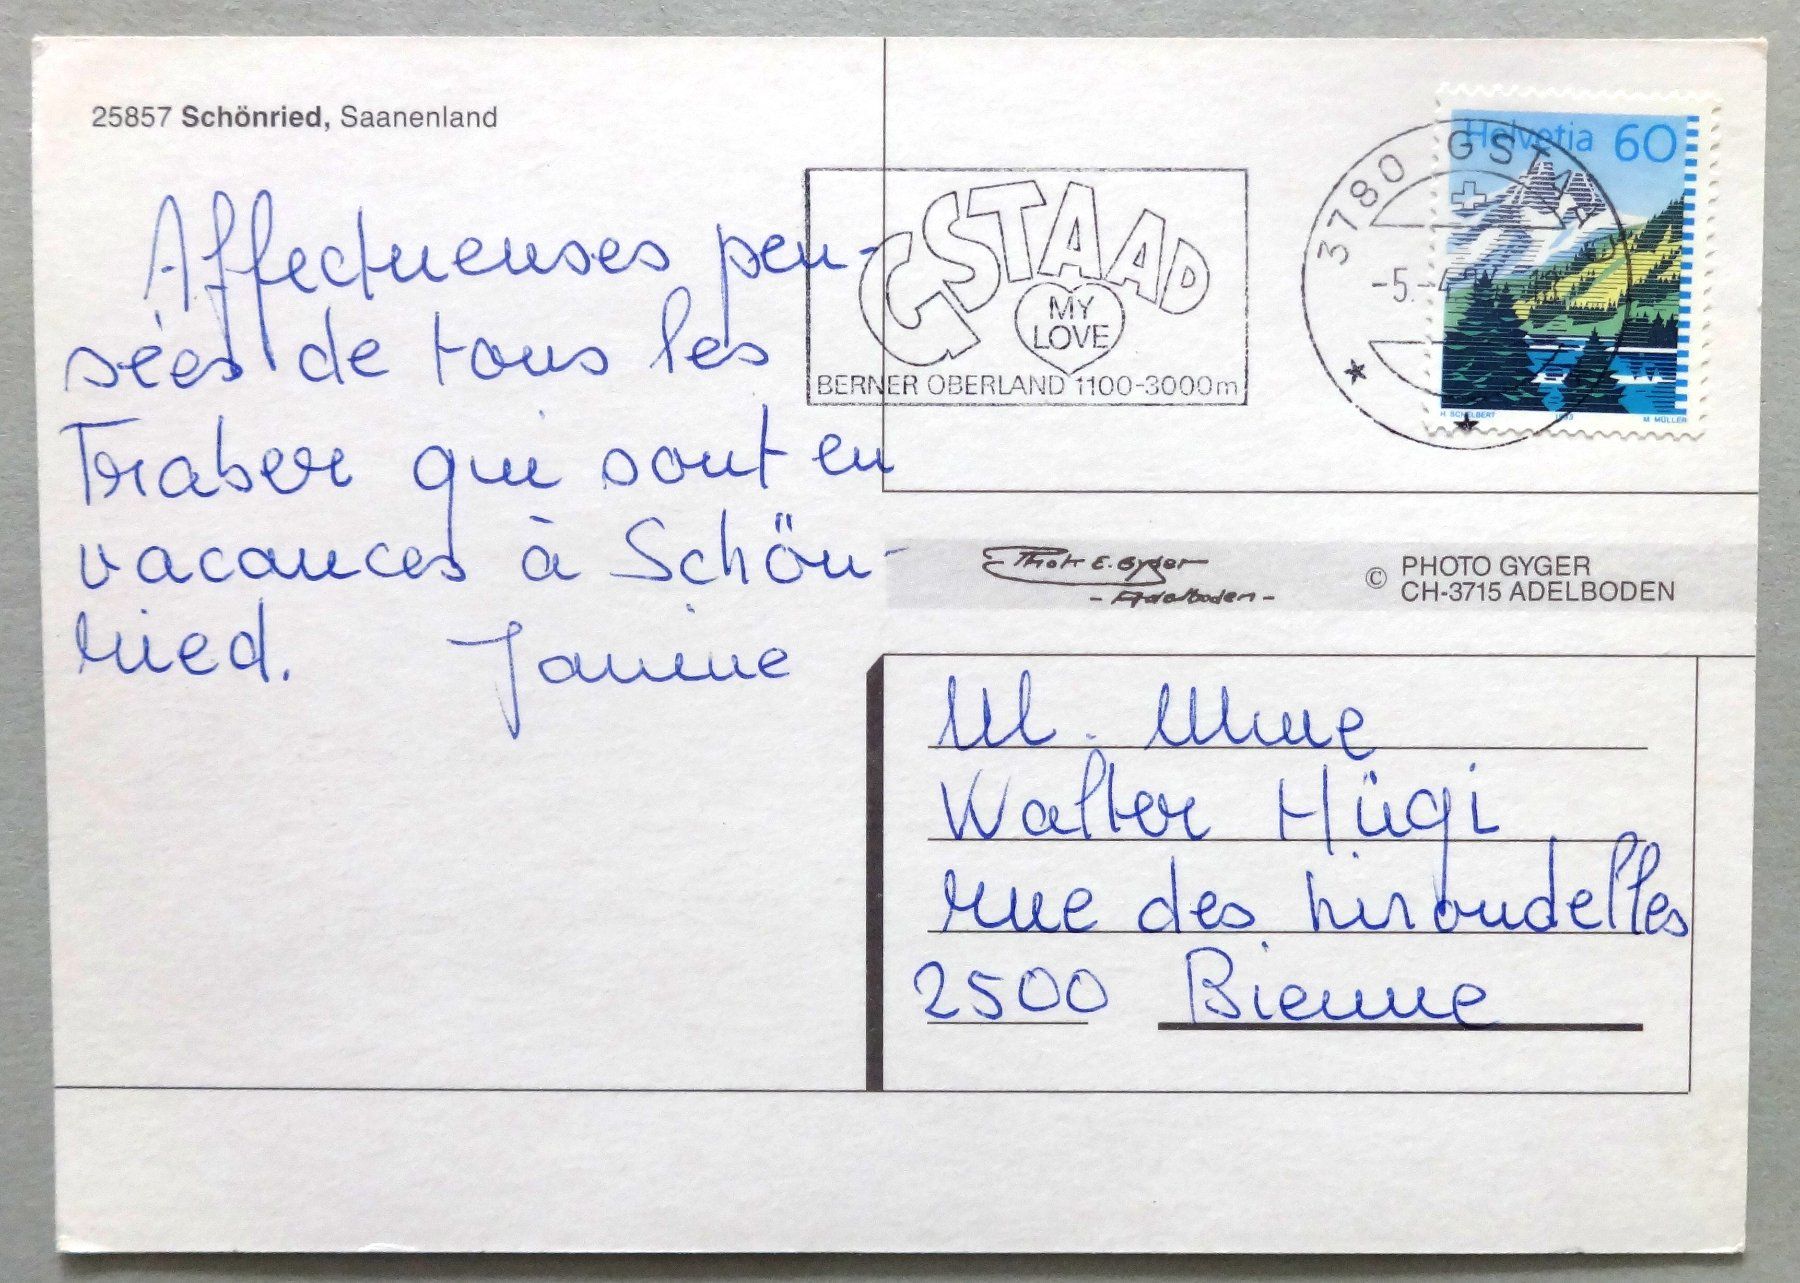 25857 Schönried, Saanenland
Affectueuses pen-
sées de tous les
Traber qui sont en
vacances à Schön-
ried. Janine
GSTAAD
MY
LOVE
BERNER OBERLAND 1100-3000m
3780 GSTAAD
-5.-
Helvetia 60
H. SCHELBERT 1993 M. MÜLLER
Photo E. Gyger
- Adelboden -
© PHOTO GYGER
CH-3715 ADELBODEN
M. Mme
Walter Hügi
rue des hirondelles
2500 Bienne